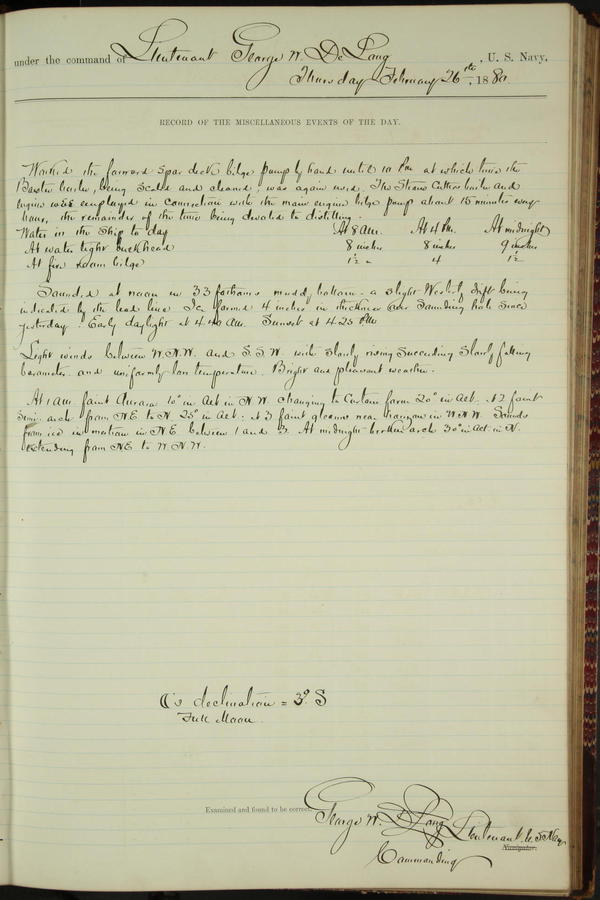 under the command of Lieutenant George W. De Long, U. S. Navy,
Thursday February 26th, 1880
RECORD OF THE MISCELLANEOUS EVENTS OF THE DAY.
Worked the forward spar deck bilge pump by hand until 10 Pm at which time the
Baxter boiler, being scaled and cleaned, was again used. The Steam Cutters boiler and
engine were employed in connection with the main engine bilge pump about 15 minutes every
hour, the remainder of the time being devoted to distilling.
Water in the Ship to day At 8 Am. At 4 Pm. At midnight
At water tight buckhead 8 inches 8 inches 9 inches
At fire room bilge 1½ " 4 1½
Sounded at noon in 33 fathoms muddy bottom - a slight Westerly drift being
indicated by the lead line. Ice formed 4 inches in thickness over Sounding hole since
yesterday. Early daylight at 4.40 Am. Sunset at 4.25 Pm
Light winds between W.N.W. and S.S.W. with slowly rising succeeding slowly falling
barometer and uniformly low temperature. Bright and pleasant weather.
At 1 Am faint Aurora 10° in Alt in N.W. changing to Curtain form 20° in Alt. At 2 faint
Semi-arch from NE to N 25° in Alt: at 3 faint gleams near horizon in WNW. Sounds
from ice in motion in N.E. between 1 and 3. At midnight broken arch 30° in alt. in N.
extending from NE to W.N.W.
☾'s declination = 3° S
Full Moon.
Examined and found to be correct.
George W. De Long Lieutenant U.S. Navy
Navigator.
Commanding